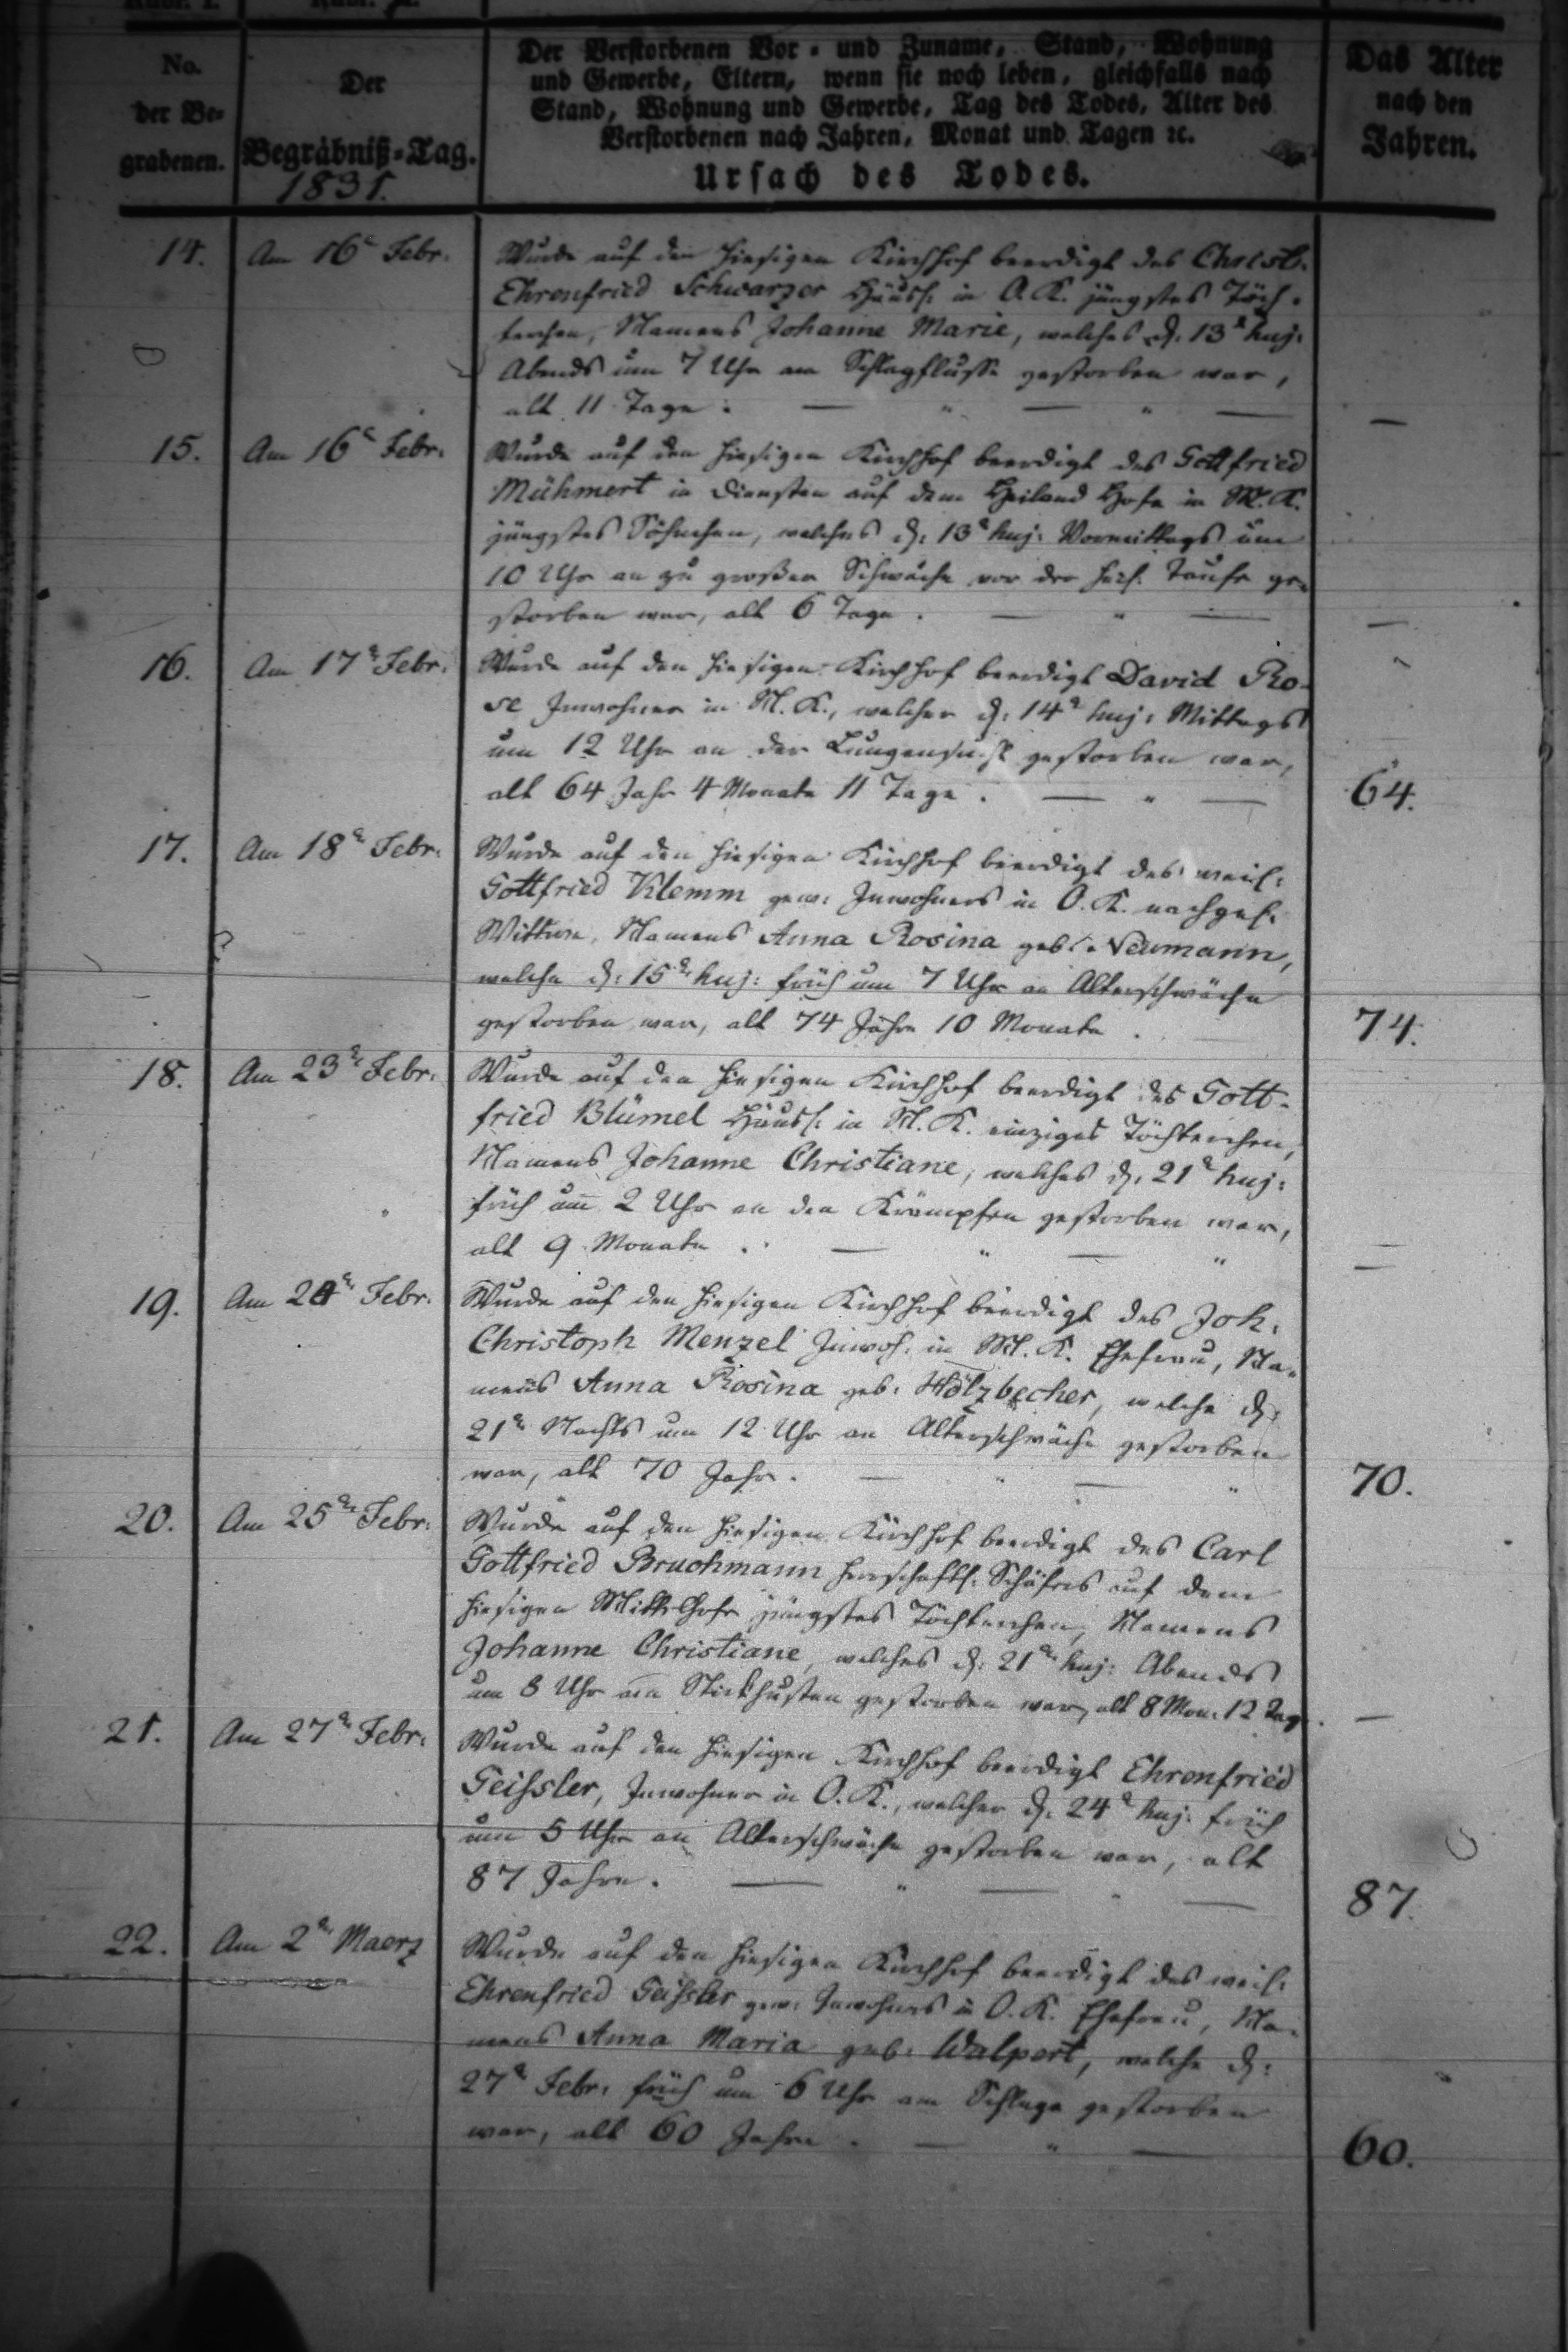 No.
der Be-
grabenen.
Der
Begräbniß-Tag.
1831.
Der Verstorbenen Vor- und Zuname, Stand, Wohnung
und Gewerbe, Eltern, wenn sie noch leben, gleichfalls nach
Stand, Wohnung und Gewerbe, Tag des Todes, Alter des
Verstorbenen nach Jahren, Monat und Tagen ꝛc.
Ursach des Todes.
Das Alter
nach den
Jahren.
14. Am 16t Febr. Wurde auf den hiesigen Kirchhof beerdigt des Christ.
Ehrenfried Schwarzer Häusl. in O. K. jüngstes Töch-
terchen, Namens Johanne Marie, welches d. 13t huj:
Abends um 7 Uhr am Schlagflusse gestorben war,
alt 11 Tage. —
15. Am 16t Febr. Wurde auf den hiesigen Kirchhof beerdigt des Gottfried
Mühmert in Diensten auf dem Heiland Hofe in M. K.
jüngstes Söhnchen, welches d. 13t huj: Vormittags um
10 Uhr an zu großer Schwäche vor der heil. Taufe ge-
storben war, alt 6 Tage. —
16. Am 17t Febr. Wurde auf den hiesigen Kirchhof beerdigt David Ro-
se Inwohner in M. K., welcher d. 14t huj: Mittags
um 12 Uhr an der Lungensucht gestorben war,
alt 64 Jahr 4 Monate 11 Tage. — 64.
17. Am 18t Febr. Wurde auf den hiesigen Kirchhof beerdigt des weil:
Gottfried Klemm gew: Inwohners in O. K. nachgel:
Wittwe, Namens Anna Rosina geb: Neumann,
welche d: 15t huj: früh um 7 Uhr an Alterschwäche
gestorben war, alt 74 Jahre 10 Monate. 74.
18. Am 23t Febr. Wurde auf den hiesigen Kirchhof beerdigt des Gott-
fried Blümel Häusl: in M. K. einziges Töchterchen,
Namens Johanne Christiane, welches d. 21t huj:
früh um 2 Uhr an den Krämpfen gestorben war,
alt 9 Monate. —
19. Am 24t Febr. Wurde auf den hiesigen Kirchhof beerdigt des Joh:
Christoph Menzel Inwoh: in M. K. Ehefrau, Na-
mens Anna Rosina geb: Holzbecher, welche d:
21t Nachts um 12 Uhr an Alterschwäche gestorben
war, alt 70 Jahr. — 70.
20. Am 25t Febr: Wurde auf den hiesigen Kirchhof beerdigt des Carl
Gottfried Bruchmann herrschaftl: Schäfers auf dem
hiesigen Mittelhofe jüngstes Töchterchen, Namens
Johanne Christiane, welches d: 21t huj: Abends
um 8 Uhr am Stickhusten gestorben war, alt 8 Mon: 12 Tage. —
21. Am 27t Febr: Wurde auf den hiesigen Kirchhof beerdigt Ehrenfried
Geißler, Inwohner in O. K., welcher d: 24t huj: früh
um 5 Uhr an Alterschwäche gestorben war, alt
87 Jahre. — 87.
22. Am 2t Maerz Wurde auf den hiesigen Kirchhof beerdigt des weil:
Ehrenfried Geißler gew: Inwohners in O. K. Ehefrau, Na-
mens Anna Maria geb: Walpert, welche d:
27t Febr: früh um 6 Uhr am Schlage gestorben
war, alt 60 Jahre. — 60.